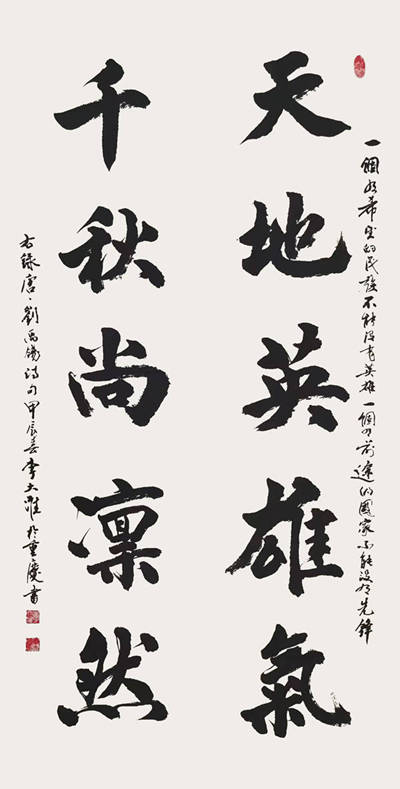 一個有希望的民族不能没有英雄一個有前途的國家不能没有先鋒
天地英雄氣
千秋尚凛然
右錄唐·劉禹錫詩句甲辰春李大於重慶書